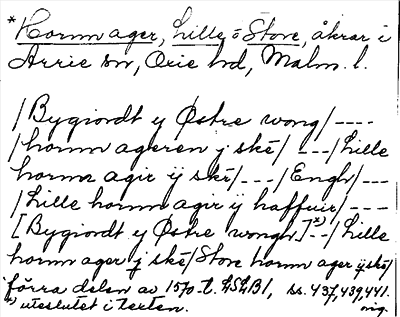 *Hornn ager, Lille o Store, åkrar i
Arrie sn, Oxie hd, Malm. l.
/Bygiordt y Østre wong/----
/hornn ageren y skē/ ---/Lille
hornn agir ÿ skē/---/Engh/---
/Lille hornn agir y haffuir/---
[Bygiordt y Østre wongh]*)--/Lille
hornn ager y skē/Store hornn ager ÿ skē/
förra delen av 1570-t. LSLB1, ss. 437,439,441.
*) uteslutet i texten. orig.